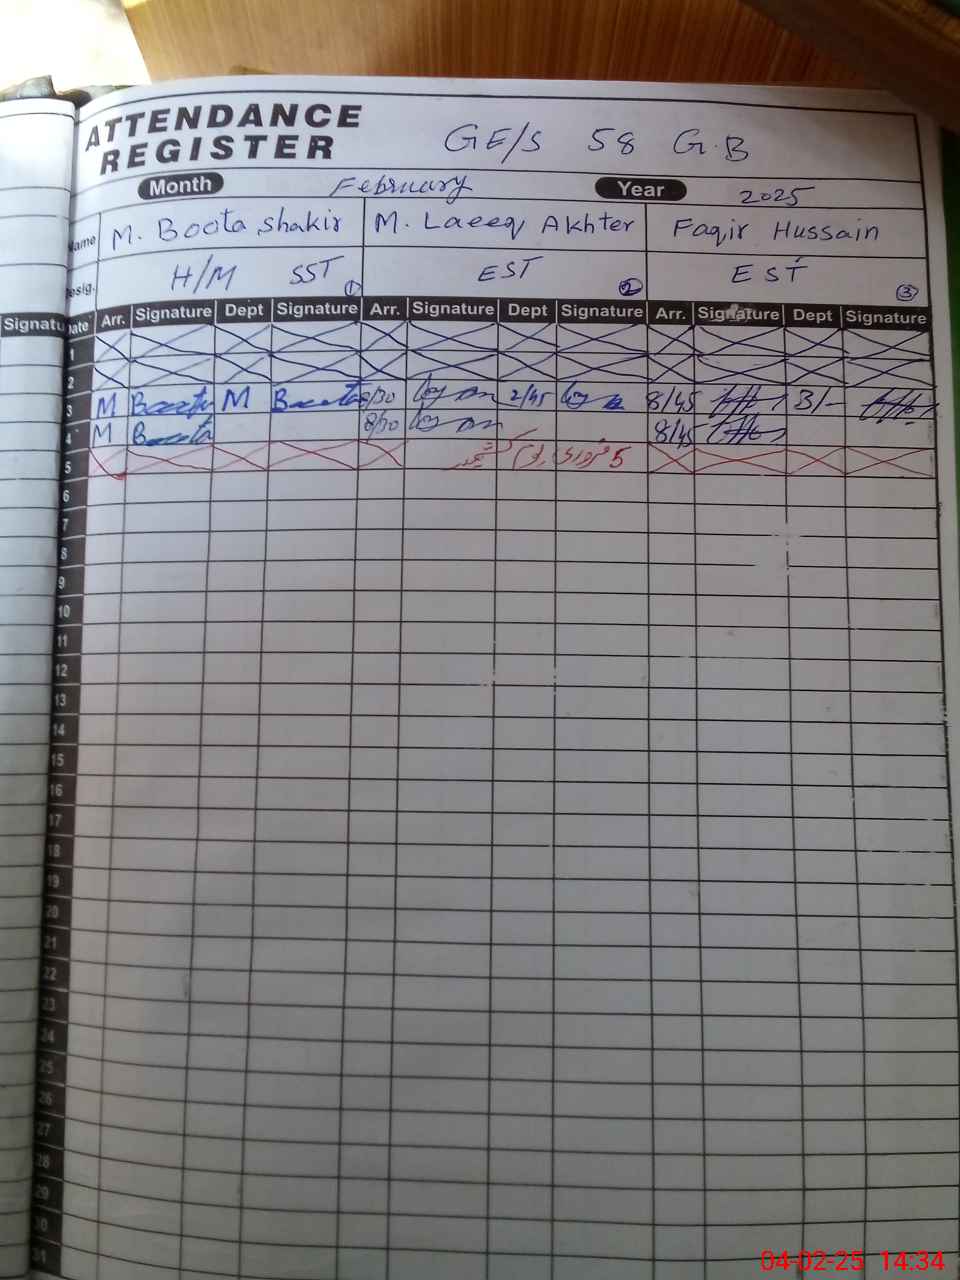 ATTENDANCE
REGISTER
GE/S 58 G.B
Month February Year 2025
Name M. Boota Shakir M. Laeeq Akhter Faqir Hussain
Desig. H/M SST 1 EST 2 EST 3
Signatu Date Arr. Signature Dept Signature Arr. Signature Dept Signature Arr. Signature Dept Signature
1
2
3 M Boota M Boota 8/30 2/45 8/45 3/-
4 M Boota 8/30 8/45
5 5 فروری یوم کشمیر
6
7
8
9
10
11
12
13
14
15
16
17
18
19
20
21
22
23
24
25
26
27
28
29
30
31
04-02-25 14:34